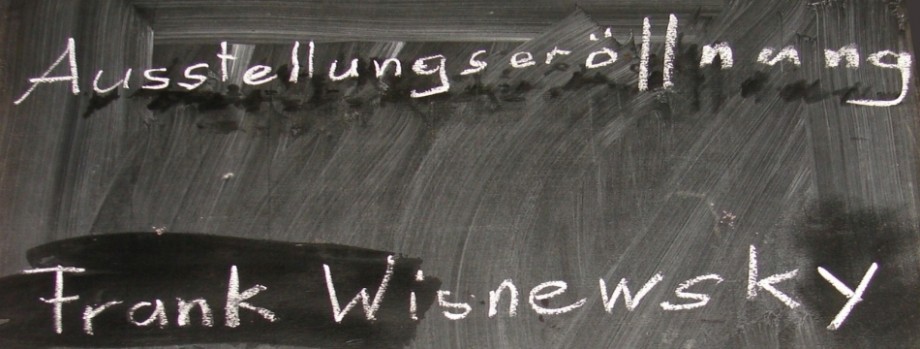 Ausstellungseröllnung
Frank Wisnewsky